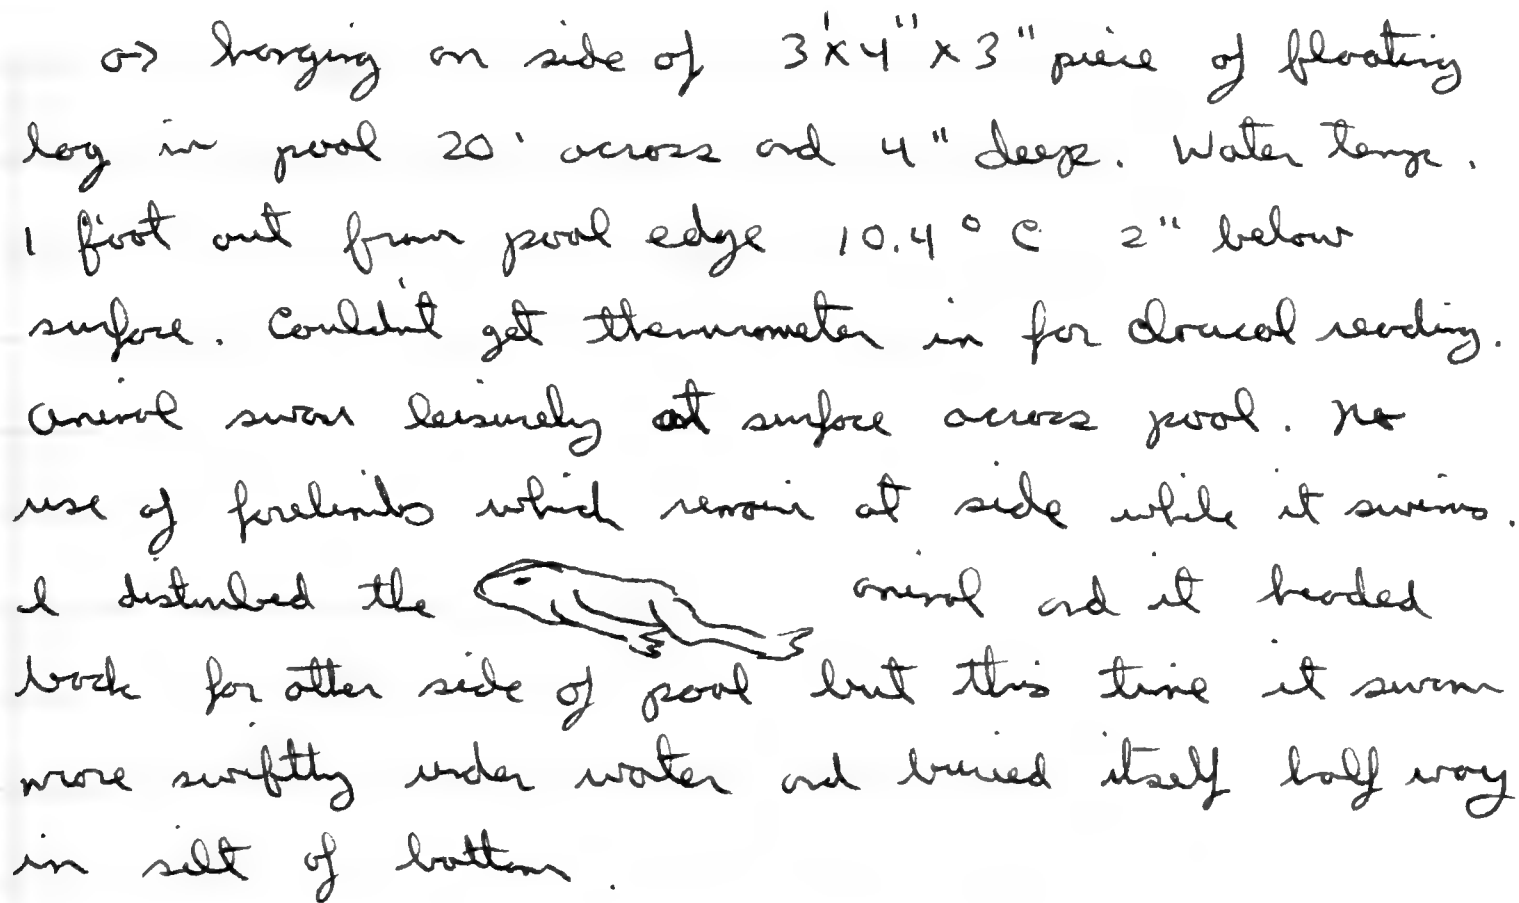 ♂ hanging on side of 3'x4"x3" piece of floating
log in pool 20' across and 4" deep. Water temp.
1 foot out from pool edge 10.4°C 2" below
surface. Couldn't get thermometer in for cloacal reading.
animal swam leisurely at surface across pool. No
use of forelimbs which remain at side while it swims.
I disturbed the animal and it headed
back for other side of pool but this time it swam
more swiftly under water and buried itself half way
in silt of bottom.